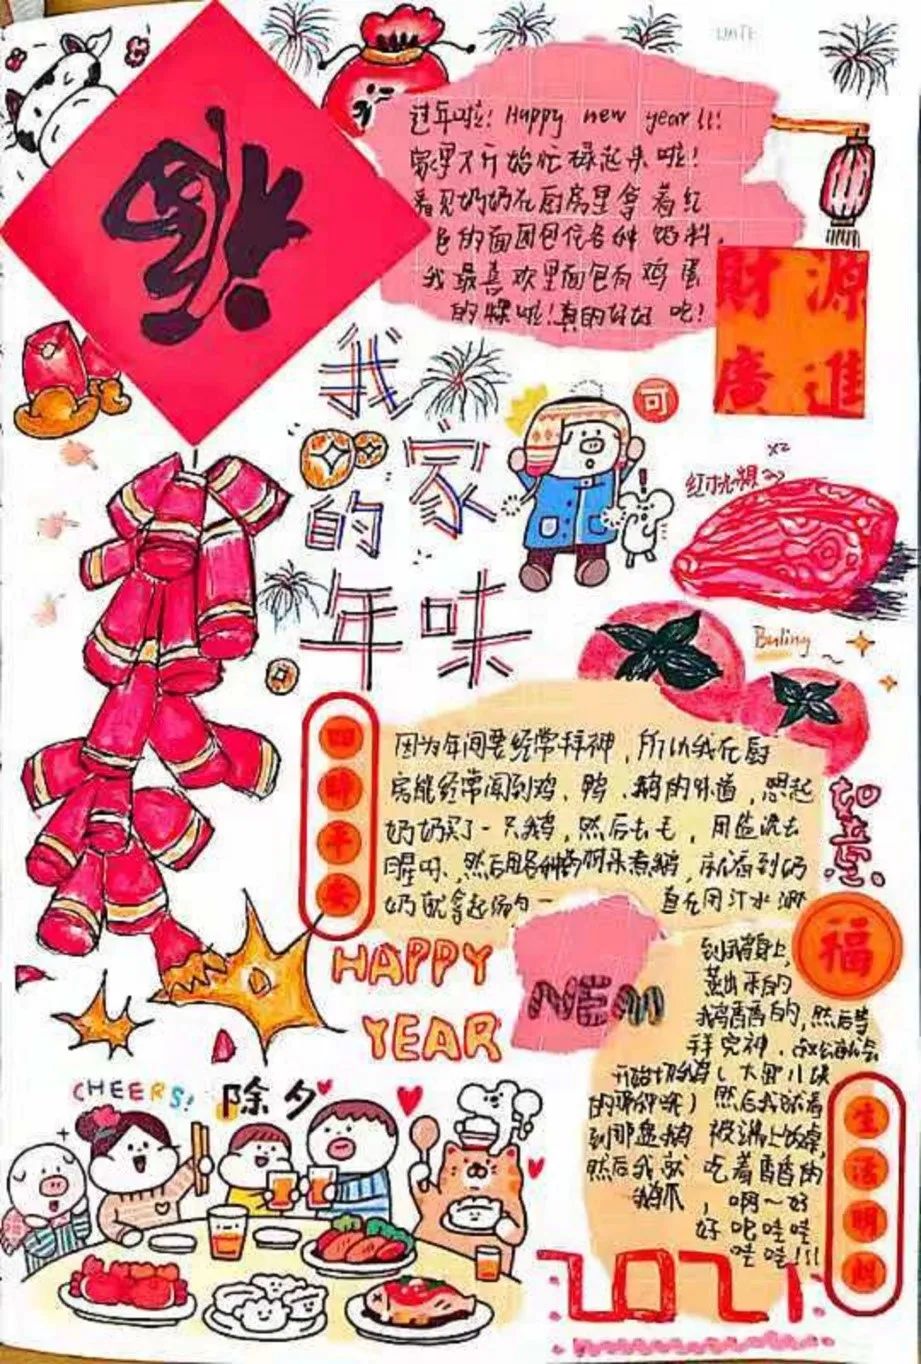 福
过年啦! Happy new year!!!
家里又开始忙碌起来啦!
看见奶奶在厨房里拿着红
色的面团包住各种馅料,
我最喜欢里面包有鸡蛋
的粿啦!真的好好吃!
財源
廣進
我
家
的
年味
可
红桃粿
x2
Buling
四
时
平
安
因为年间要经常拜神,所以我在厨
房能经常闻到鸡、鸭、鹅的味道,想起
奶奶买了一只鹅,然后去毛,用盐洗去
腥味、然后用各种香料来煮鹅,就看到奶
奶就拿起汤勺一直在用汁水淋
如意
福
到鹅身上,
蒸出来的
鹅香香的,然后等
拜完神,
开始切鹅(大卸八块
的那种哦)然后我就看
到那盘鹅被端上饭桌,
然后我就吃着香香的
鹅爪,啊~好
好吃哇哇
哇哇!!!
HAPPY
NEW
YEAR
CHEERS!
除夕
生
活
明
朗
2021